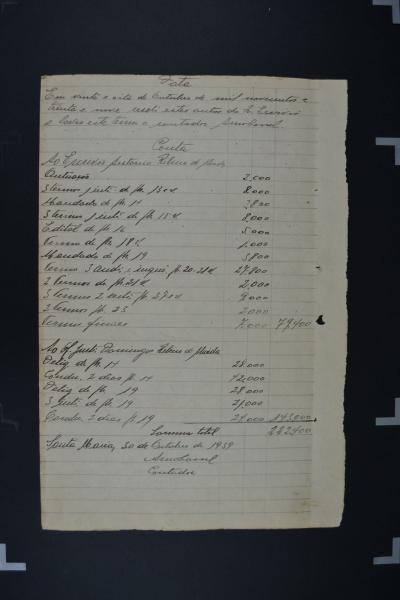 Data
Em vinte e sete de Outubro de mil novecentos e
trinta e nove recebi estes autos do Sr. Escrivão
e lavro este termo o contador
Conta
Ao Escrivão Antonio Ribeiro de
Autuação 2.000
3 termos 1 inti. de fls. 13 8.000
Mandado de fls. 14 3.800
3 termos 1 inti. de fls. 15 8.000
Edital de fls. 16 5.000
Termo de fls. 18 1.000
Mandado de fls. 19 3.800
Termo 3 audi. e inqui. fls. 20.21 27.800
2 Termos de fls. 21 2.000
3 Termos 2 fls. 27
2 Termos fls. 23 2.000
Termos finaes 7.000 79,400
Ao Of. Just. Domingos Ribeiro de Almeida
Delig. de fls. 14 28.000
Condu. 2 dias fls. 14 42,000
Delig. de fls. 19 28.000
3 inti. de fls. 19 21,000
Condu. 2 dias fls. 19 24.000 143,000
Somma total 222400
Santa Maria, 30 de Outubro de 1939
Contador